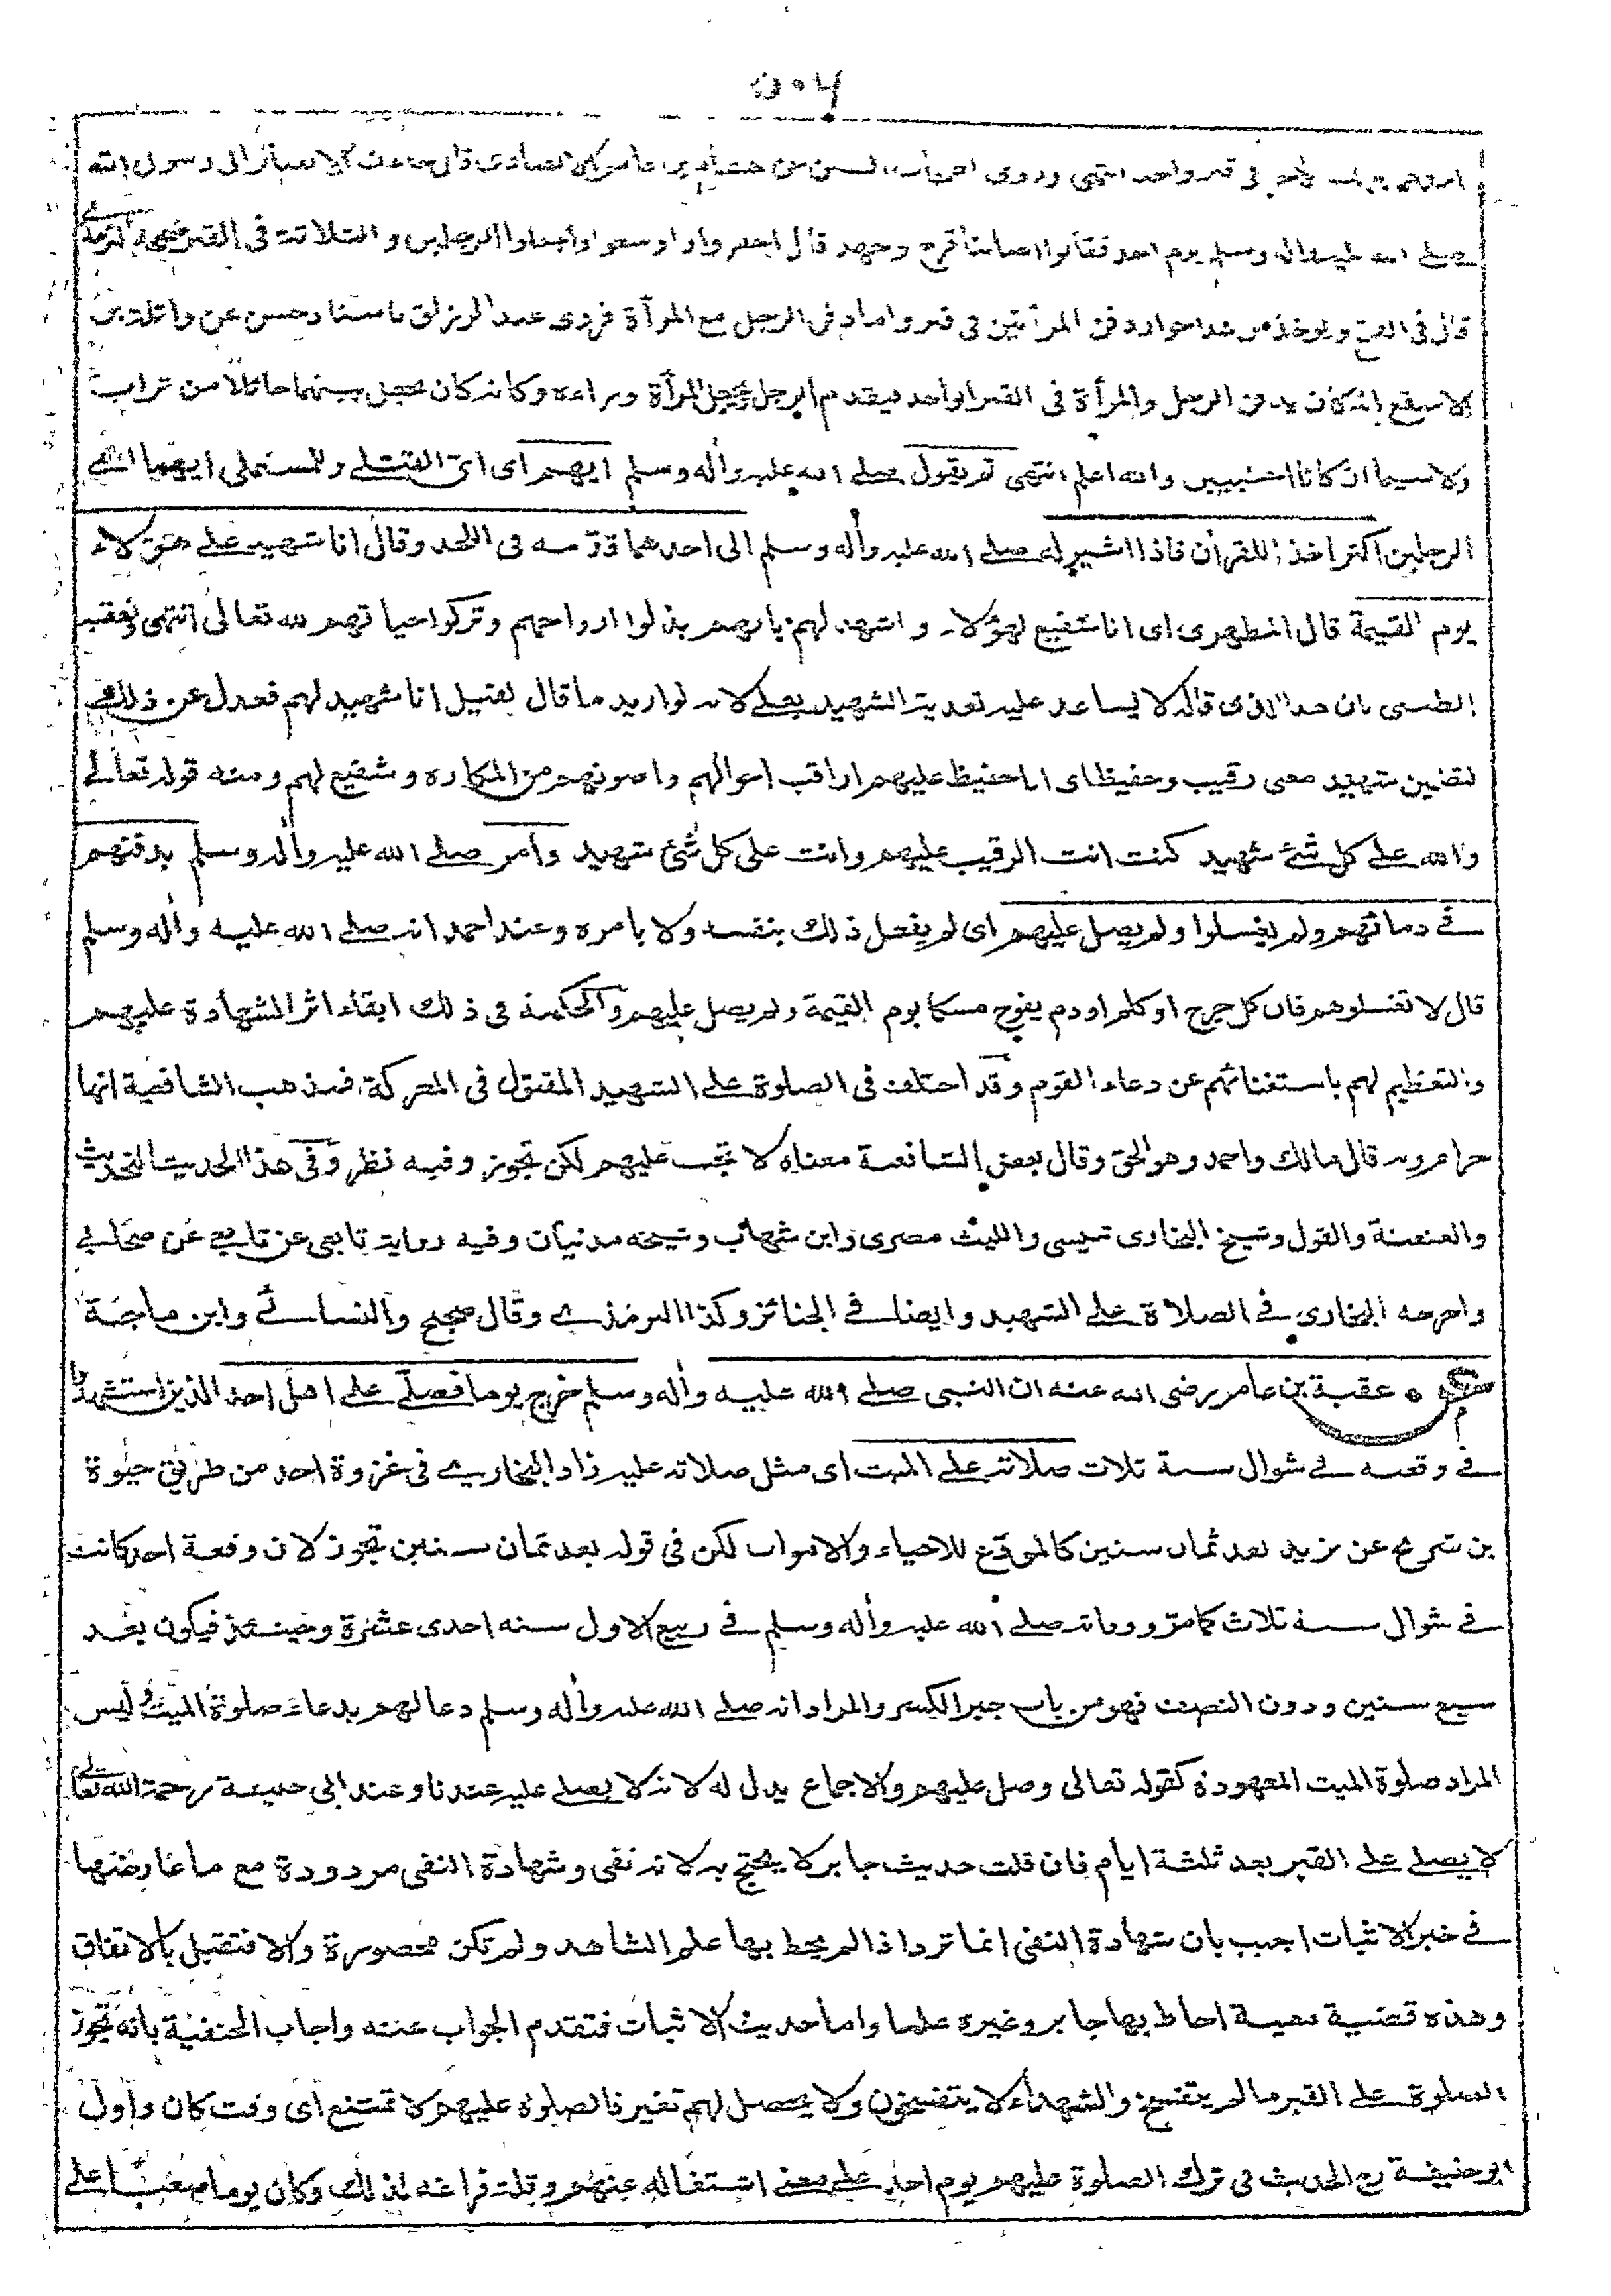 ٥٠٦
في قبر واحد انتهى وروى اصحاب السنن عن هشام بن عامر الانصاري قال جاءت الانصار الى رسول الله
صلى الله عليه واله وسلم يوم احد فقالوا اصابنا قرح وجهد قال احفروا واوسعوا واجعلوا الرجلين والثلاثة في القبر صححه الترمذي
قال في الفتح ويؤخذ من هذا جواز دفن المرأتين في قبر واما دفن الرجل مع المرأة فروى عبد الرزاق باسناد حسن عن واثلة بن
الاسقع انه كان يدفن الرجل والمرأة في القبر الواحد فيقدم الرجل ويجعل المرأة وراءه وكانه كان يجعل بينهما حائلا من تراب
ولاسيما ان كانا اجنبيين والله اعلم انتهى ثم يقول صلى الله عليه واله وسلم ايهم اى اى القتلى وللمستملى ايهما اى
الرجلين اكثر اخذ اللقران فاذا اشير له صلى الله عليه واله وسلم الى احدهما قدمه فى اللحد وقال انا شهيد على هؤلاء
يوم القيمة قال المظهرى اى انا شفيع لهؤلاء واشهد لهم بانهم بذلوا ارواحهم وتركوا حياتهم لله تعالى انتهى وتعقبه
الطيبى بان هذا الذى قاله لا يساعد عليه تعدية الشهيد بعلى لانه لو اريد ما قال لقيل انا شهيد لهم فعدل عن ذلك
لتضمين شهيد معنى رقيب وحفيظ اى انا حفيظ عليهم اراقب احوالهم واصونهم من المكاره وشفيع لهم ومنه قوله تعالى
والله على كل شئ شهيد كنت انت الرقيب عليهم وانت على كل شئ شهيد وامر صلى الله عليه واله وسلم بدفنهم
فى دمائهم ولم يغسلوا ولم يصل عليهم اى لم يفعل ذلك بنفسه ولا بامره وعند احمد انه صلى الله عليه واله وسلم
قال لا تغسلوهم فان كل جرح او كلم او دم يفوح مسكا يوم القيمة ولم يصل عليهم والحكمة فى ذلك ابقاء اثر الشهادة عليهم
والتعظيم لهم باستغنائهم عن دعاء القوم وقد اختلف فى الصلوة على الشهيد المقتول فى المعركة فمذهب الشافعية انها
حرام وبه قال مالك واحمد وهو الحق وقال بعض الشافعية معناه لا تجب عليهم لكن تجوز وفيه نظر وفى هذا الحديث التحديث
والعنعنة والقول وشيخ البخارى تنيسى والليث مصرى وابن شهاب وشيخه مدنيان وفيه رواية تابعى عن تابعى عن صحابى
واخرجه البخارى فى الصلاة على الشهيد وايضا فى الجنائز وكذا الترمذى وقال صحيح والنسائى وابن ماجة
عقبة بن عامر رضى الله عنه ان النبى صلى الله عليه واله وسلم خرج يوما فصلى على اهل احد الذين استشهدوا
فى وقعته فى شوال سنة ثلاث صلاته على الميت اى مثل صلاته عليه زاد البخارى فى غزوة احد من طريق حيوة
بن شريح عن يزيد بعد ثمان سنين كالمودع للاحياء والاموات لكن فى قوله بعد ثمان سنين تجوز لان وقعة احد كانت
فى شوال سنة ثلاث كما مر ووفاته صلى الله عليه واله وسلم فى ربيع الاول سنه احدى عشرة وحينئذ فيكون بعد
سبع سنين ودون النصف فهو من باب جبر الكسر والمراد انه صلى الله عليه واله وسلم دعا لهم بدعاء صلوة الميت وليس
المراد صلوة الميت المعهودة كقوله تعالى وصل عليهم والاجماع يدل له لانه لا يصلى عليه عندنا وعند ابى حنيفة رحمة الله تعالى
لا يصلى على القبر بعد ثلثة ايام فان قلت حديث جابر لا يحتج به لانه نفى وشهادة النفى مردودة مع ما عارضها
فى خبر الاثبات اجيب بان شهادة النفى انما ترد اذا لم يحط بها علم الشاهد ولم تكن محصورة والا فتقبل بالاتفاق
وهذه قضية معينة احاط بها جابر وغيره علما واما حديث الاثبات فتقدم الجواب عنه واجاب الحنفية بانه تجوز
الصلوة على القبر ما لم يتفسخ والشهداء لا يتفسخون ولا يحصل لهم تغير فالصلوة عليهم لا تمتنع اى وقت كان واول
ابو حنيفة الحديث فى ترك الصلوة عليهم يوم احد على معنى اشتغاله عنهم وقلة فراغه لذلك وكان يوما صعبا على